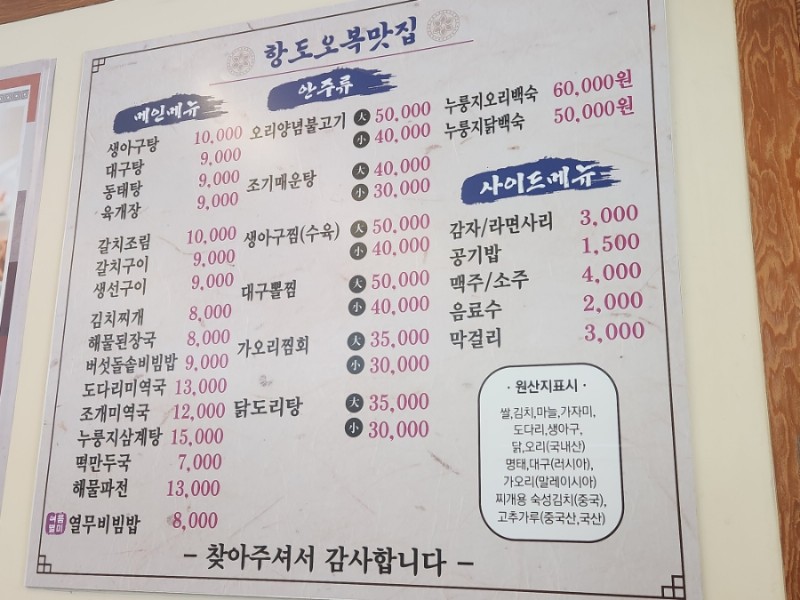 항도오복맛집
메인메뉴
생아구탕 10,000
대구탕 9,000
동태탕 9,000
육개장 9,000
갈치조림 10,000
갈치구이 9,000
생선구이 9,000
김치찌개 8,000
해물된장국 8,000
버섯돌솥비빔밥 9,000
도다리미역국 13,000
조개미역국 12,000
누룽지삼계탕 15,000
떡만두국 7,000
해물파전 13,000
여름별미 열무비빔밥 8,000
안주류
오리양념불고기 大 50,000
小 40,000
조기매운탕 大 40,000
小 30,000
생아구찜(수육) 大 50,000
小 40,000
대구뽈찜 大 50,000
小 40,000
가오리찜회 大 35,000
小 30,000
닭도리탕 大 35,000
小 30,000
누룽지오리백숙 60,000원
누룽지닭백숙 50,000원
사이드메뉴
감자/라면사리 3,000
공기밥 1,500
맥주/소주 4,000
음료수 2,000
막걸리 3,000
· 원산지표시 ·
쌀,김치,마늘,가자미,
도다리,생아구,
닭,오리(국내산)
명태,대구(러시아),
가오리(말레이시아)
찌개용 숙성김치(중국),
고추가루(중국산,국산)
– 찾아주셔서 감사합니다 –